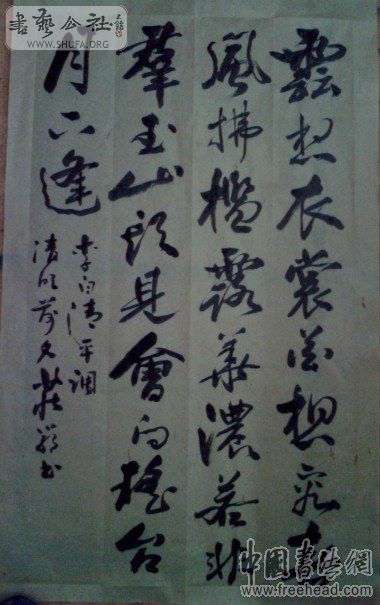 書藝公社
WWW.SHUFA.ORG
雲想衣裳花想容春
風拂檻露華濃若非
羣玉山頭見會向瑤台
月下逢
李白清平調
清明前夕莊书
中國書法網
www.freehead.com